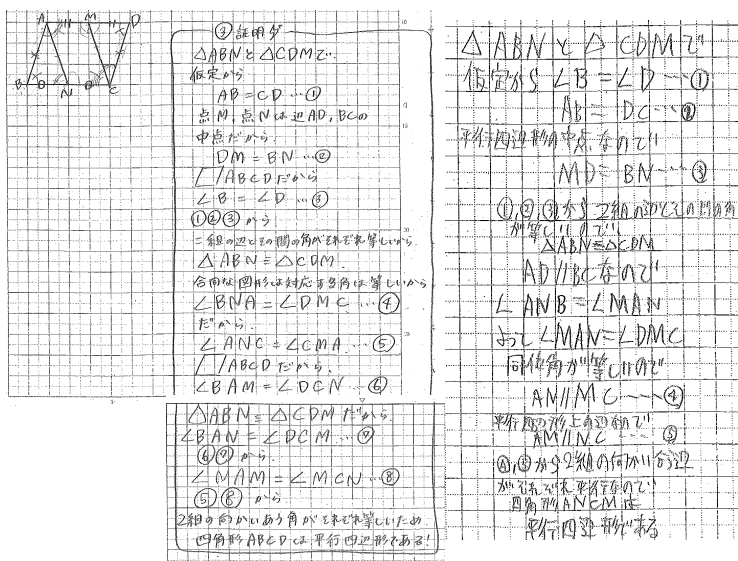 A M D
B N C
③証明ダ
△ABNと△CDMで.
仮定から
AB=CD…①
点M,点Nは辺AD,BCの
中点だから.
DM=BN…②
▱ABCDだから
∠B=∠D…③
①②③から
二組の辺とその間の角がそれぞれ等しいから
△ABN≡△CDM.
合同な図形は対応する角は等しいから
∠BNA=∠DMC…④
だから.
∠ANC=∠CMA…⑤
▱ABCDだから.
∠BAM=∠DCN…⑥
△ABN≡△CDMだから.
∠BAN=∠DCM…⑦
⑥⑦から.
∠MAM=∠MCN…⑧
⑤⑧から
2組の向かいあう角がそれぞれ等しいため
四角形ABCDは平行四辺形である!
△ABNと△CDMで
仮定から∠B=∠D…①
AB=DC…②
平行四辺形の中点なので
MD=BN…③
①,②,③から2組の辺とその間の角
が等しいので
△ABN≡△CDM
AD//BCなので
∠ANB=∠MAN
よって∠MAN=∠DMC
同位角が等しいので
AN//MC……④
平行四辺形上の辺なので
AM//NC……⑤
④,⑤から2組の向かい合う辺
がそれぞれ平行なので
四角形ANCMは
平行四辺形である